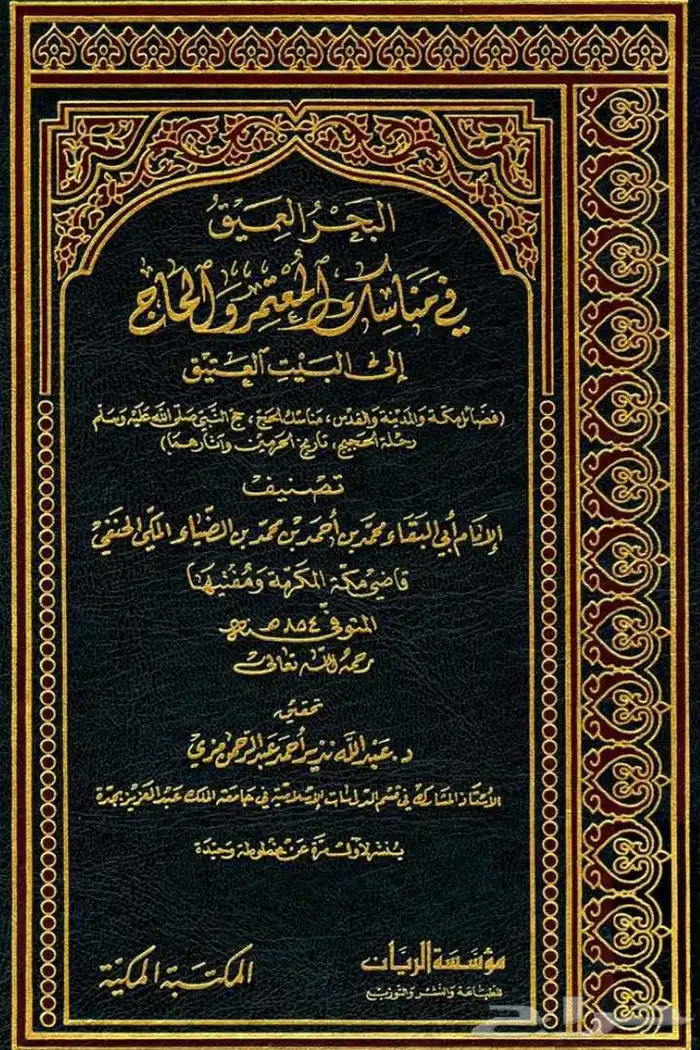 البَحْرُ العَمِيْقُ
في مَنَاسِكِ المُعْتَمِرِ وَالحَاجِّ
إِلَى البَيْتِ العَتِيْقِ
(فضائل مكة والمدينة والقدس، مناسك الحج، حج النبي صلى الله عليه وسلم
رحلة الحجيج، تاريخ الحرمين وآثارهما)
تصنيف
الإمام أبي البقاء محمد بن أحمد بن محمد بن الضياء المكي الحنفي
قاضي مكة المكرمة ومفتيها
المتوفى ٨٥٤ هـ
رحمه الله تعالى
تحقيق
د. عبد الله نذير أحمد عبد الرحمن مزي
الأستاذ المشارك في قسم الدراسات الإسلامية في جامعة الملك عبد العزيز بجدة
ينشر لأول مرة عن مخطوطة وحيدة
مؤسسة الريان
للطباعة والنشر والتوزيع
المكتبة المكية
حراج